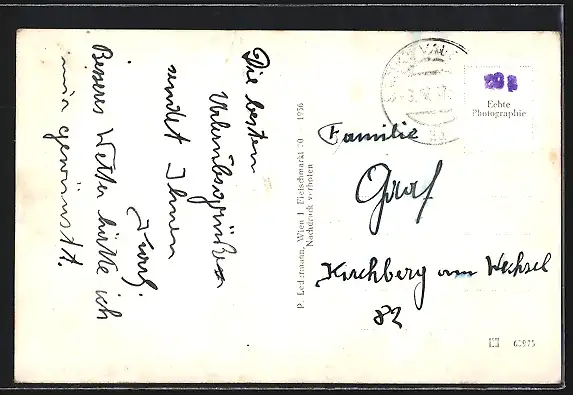 Die besten
Urlaubsgrüße
sendet Ihnen
Besseres Wetter hätte ich
mir gewünscht.
P. Ledermann, Wien 1, Fleischmarkt 20 1956
Nachdruck verboten
Echte
Photographie
Familie
Graf
Kirchberg am Wechsel
82